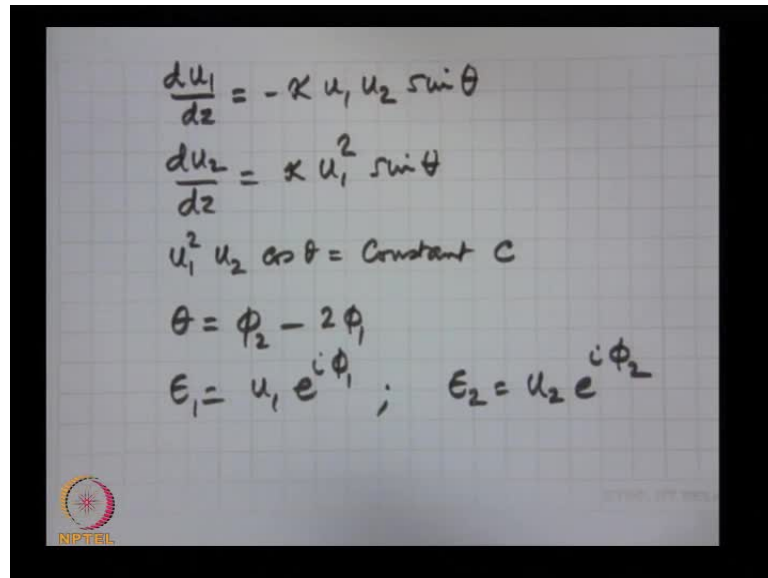 du₁/dz = - κ u₁ u₂ sin θ
du₂/dz = κ u₁² sin θ
u₁² u₂ cos θ = Constant C
θ = ϕ₂ - 2 ϕ₁
ϵ₁ = u₁ e^{iϕ₁} ; ϵ₂ = u₂ e^{iϕ₂}
NPTEL